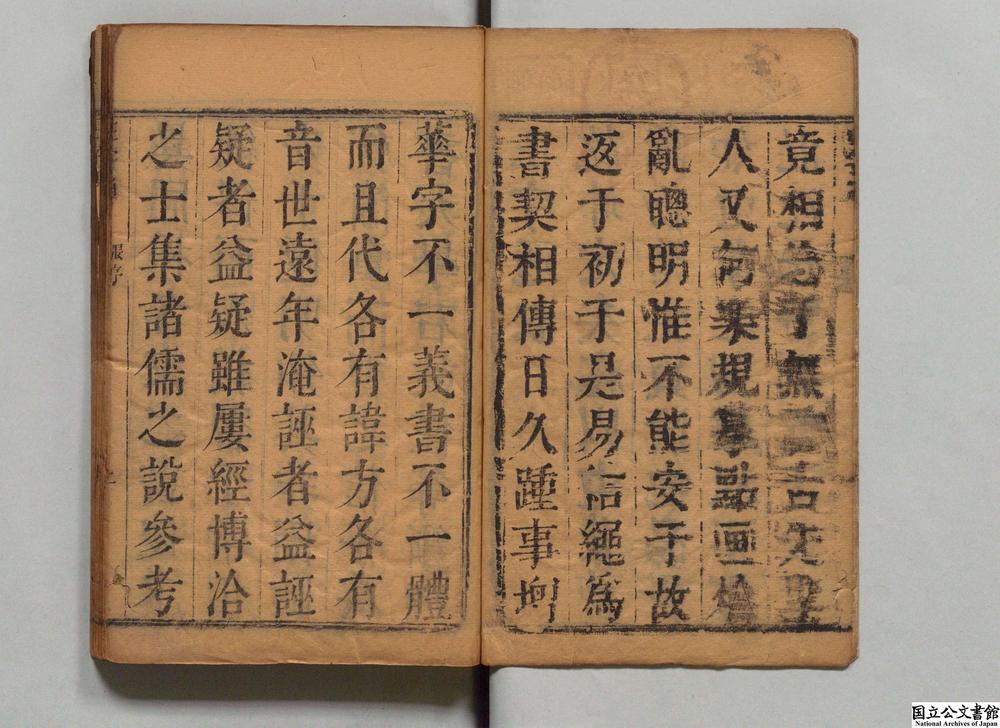 竟相 無
人又何 規 點画
亂聰明惟不能安于故
返于初于是易結繩為
書契相傳日久踵事增
華字不一義書不一體
而且代各有諱方各有
音世遠年淹誣者益誣
疑者益疑雖屢經博洽
之士集諸儒之說參考
張序
国立公文書館
National Archives of Japan